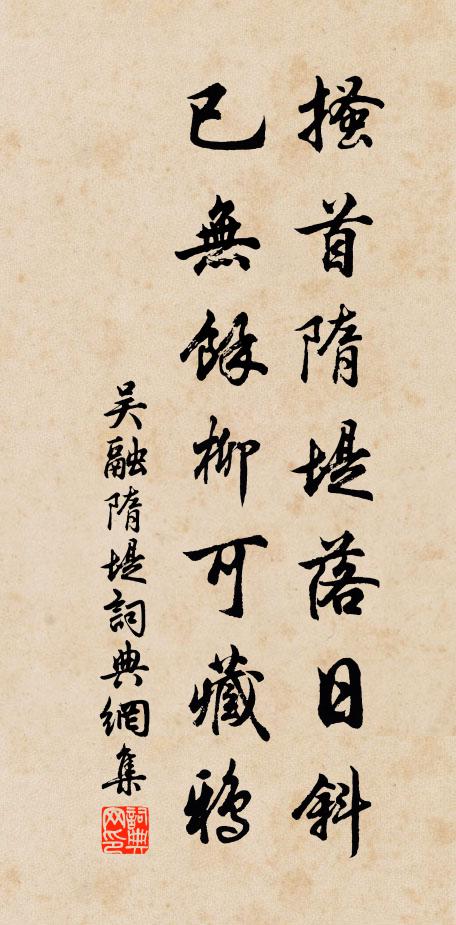 搔首隋堤落日斜
已無餘柳可藏鴉
吴融隋堤詞典網集
詞典網印